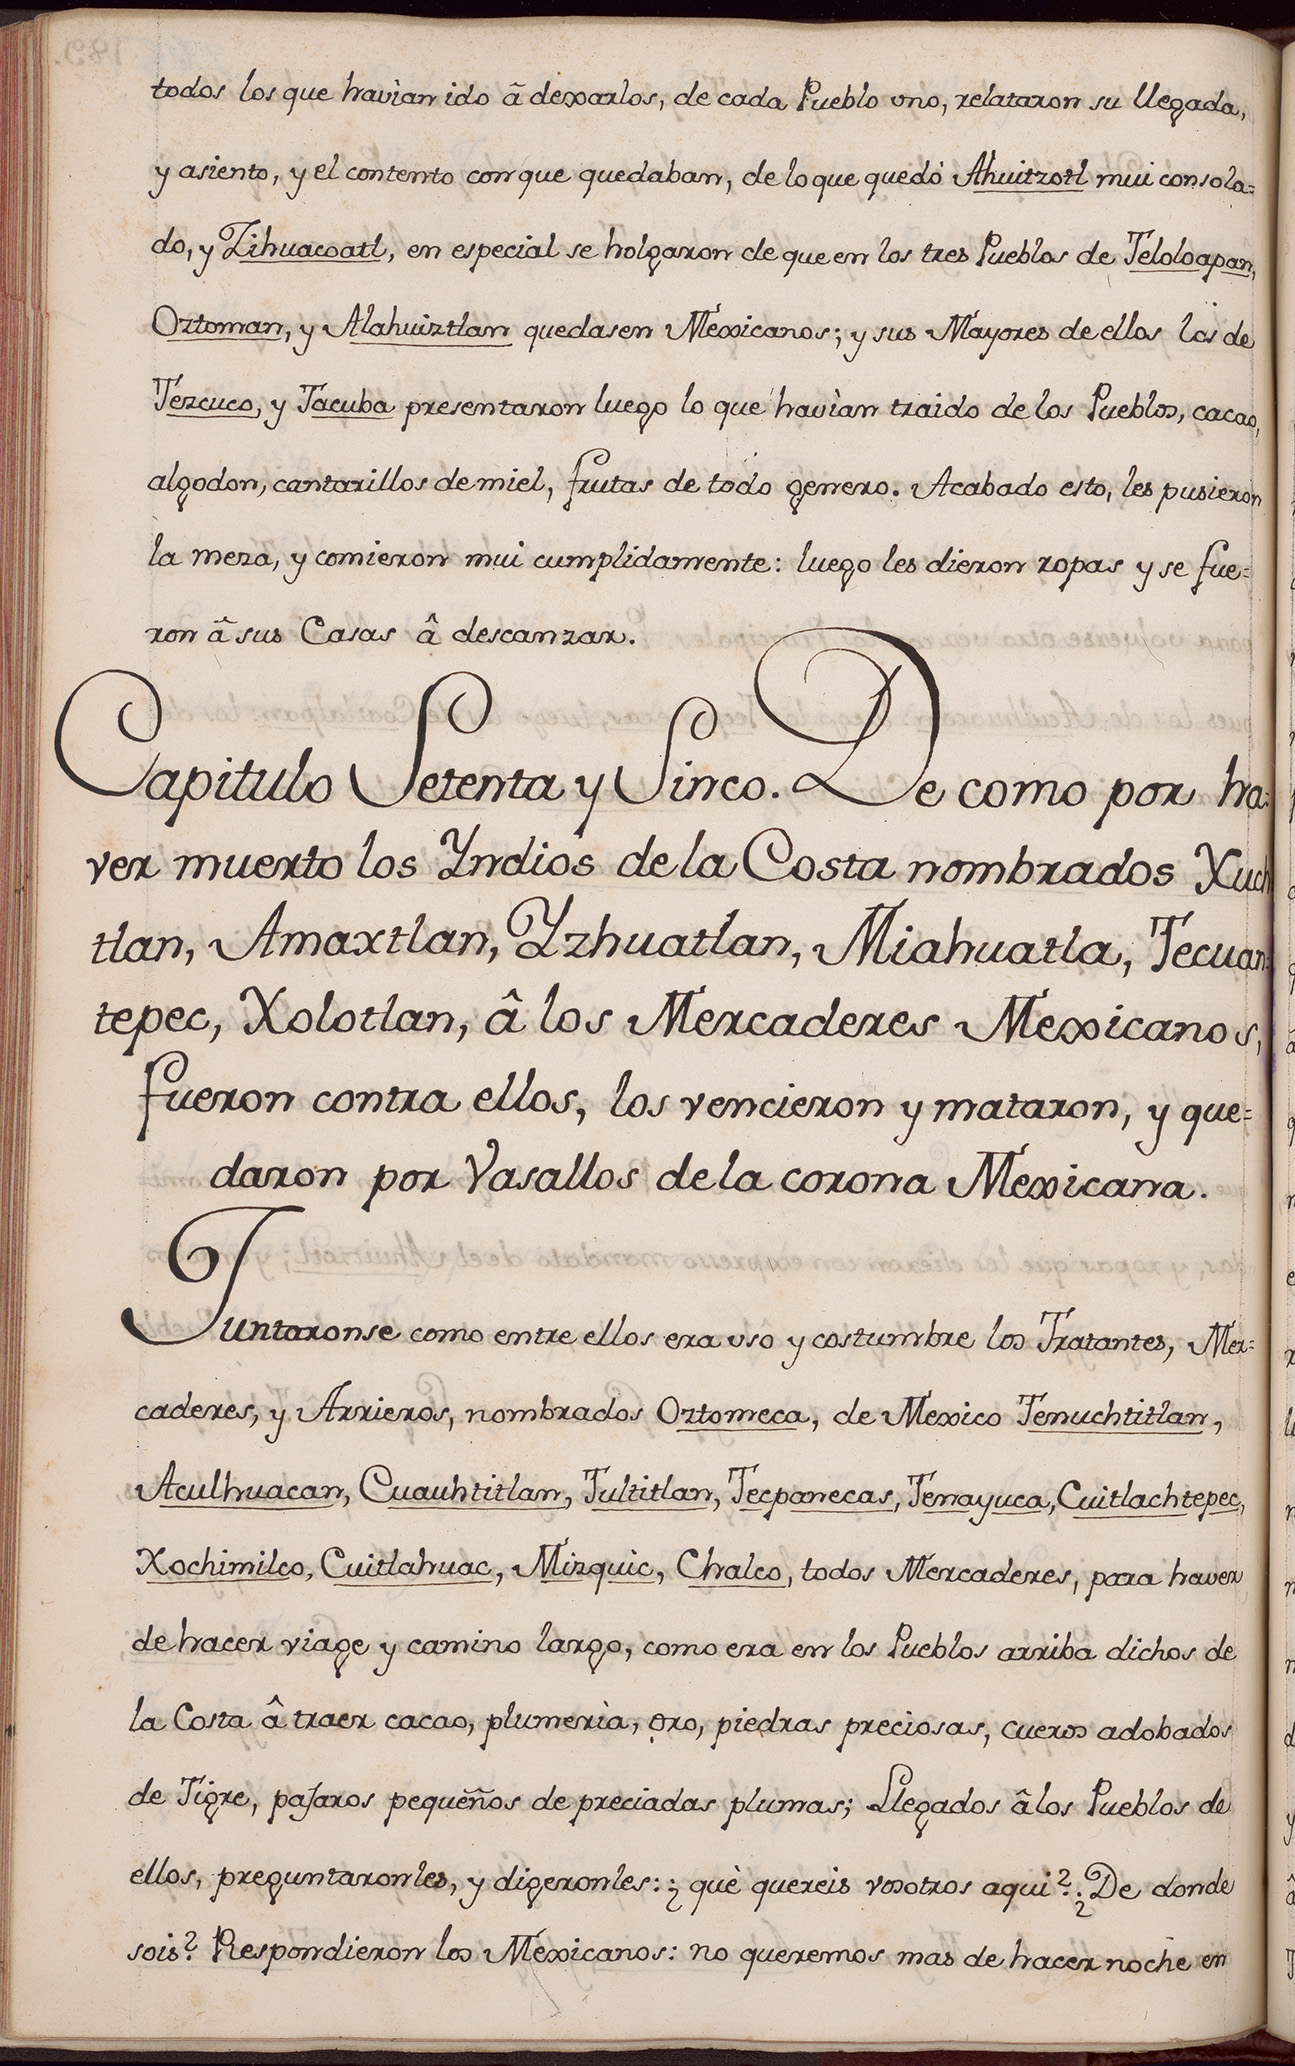 todos los que havian ido â dexarlos, de cada Pueblo uno, relataron su llegada,
y asiento, y el contento con que quedaban, de lo que quedó Ahuitzotl mui consola=
do, y Zihuacoatl, en especial se holgaron de que en los tres Pueblos de Teloloapan,
Oztoman, y Alahuiztlan quedasen Mexicanos; y sus Mayores de ellos los de
Tezcuco, y Tacuba presentaron luego lo que havian traido de los Pueblos, cacao,
algodon, cantarillos de miel, frutas de todo genero. Acabado esto, les pusieron
la meza, y comieron mui cumplidamente: luego les dieron ropas y se fue=
ron â sus Casas â descanzar.
Capitulo Setenta y Sinco. De como por ha=
ver muerto los Yndios de la Costa nombrados Xuch
tlan, Amaxtlan, Yzhuatlan, Miahuatla, Tecuan=
tepec, Xolotlan, â los Mercaderes Mexicanos,
fueron contra ellos, los vencieron y mataron, y que=
daron por Vasallos de la corona Mexicana.
Juntaronse como entre ellos era uso y costumbre los Tratantes, Mer=
caderes, y Arrieros, nombrados Oztomeca, de Mexico Tenuchtitlan,
Aculhuacan, Cuauhtitlan, Tultitlan, Tecpanecas, Tenayuca, Cuitlachtepec,
Xochimilco, Cuitlahuac, Mizquic, Chalco, todos Mercaderes, para haver
de hacer viage y camino largo, como era en los Pueblos arriba dichos de
la Costa â traer cacao, plumerìa, oro, piedras preciosas, cueros adobados
de Tigre, pajaros pequeños de preciadas plumas; Llegados â los Pueblos de
ellos, preguntaronles, y digeronles: ¿ què quereis vosotros aqui? ¿De donde
sois? Respondieron los Mexicanos: no queremos mas de hacer noche en